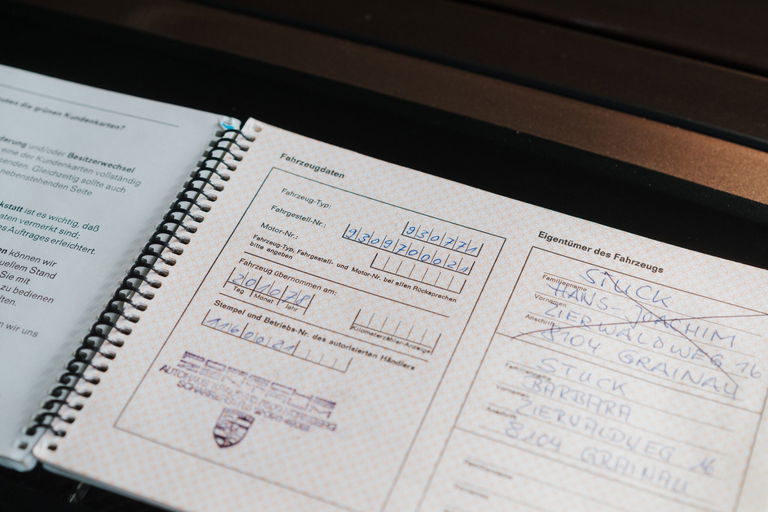 den die grünen Kundenkarten?
und/oder Besitzerwechsel
eine der Kundenkarten vollständig
Gleichzeitig sollte auch
nebenstehenden Seite
ist es wichtig, daß
vermerkt sind;
Auftrages erleichtert.
können wir
Stand
Sie mit
zu bedienen
wir uns
Fahrzeugdaten
Fahrzeug-Typ: 930771
Fahrgestell-Nr.: 9309700021
Motor-Nr.:
Fahrzeug-Typ, Fahrgestell- und Motor-Nr. bei allen Rücksprachen
bitte angeben
Fahrzeug übernommen am:
201078
Tag Monat Jahr
Kilometerzähler-Anzeige
Stempel und Betriebs-Nr. des autorisierten Händlers
1160021
Eigentümer des Fahrzeugs
Familienname STUCK
Vorname HANS-JOACHIM
Anschrift ZIERWALDWEG 16
8104 GRAINAU
STUCK
BARBARA
ZIERWALDWEG 16
8104 GRAINAU